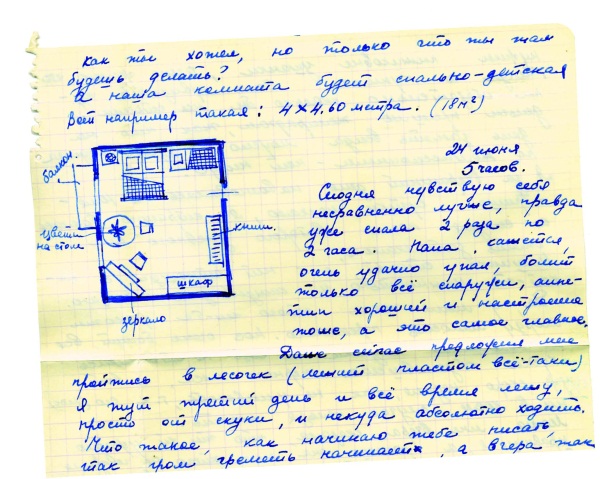 как ты хочешь, но только что ты там
будешь делать?
А наша комната будет спально-детская
Вот например такая: 4 × 4,60 метра. (18 м²)
балкон.
цветы
на столе
книги.
шкаф
зеркало
24 июня
5 часов.
Сегодня чувствую себя
несравненно лучше, правда
уже спала 2 раза по
2 часа. Папа, кажется,
очень удачно упал, болит
только всё снаружи, аппе-
тит хороший и настроение
тоже, а это самое главное.
Даже сейчас предложил мне
пройтись в лесочек (лежит пластом всё-таки)
Я тут третий день и всё время лежу,
просто от скуки, и некуда абсолютно ходить.
Что такое, как начинаю тебе писать,
так гром греметь начинает, а вчера так